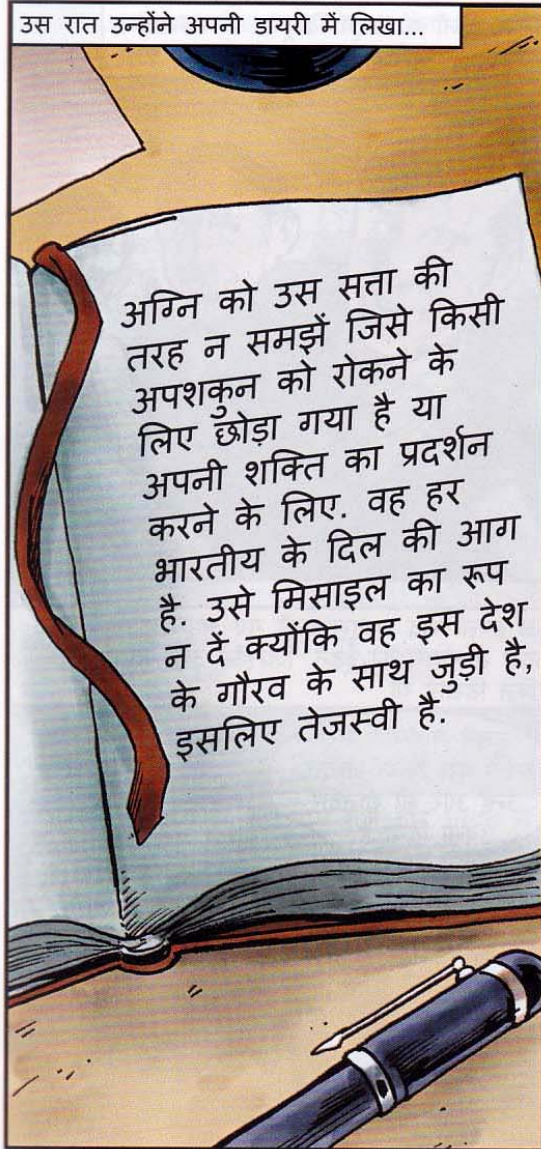 उस रात उन्होंने अपनी डायरी में लिखा...
अग्नि को उस सत्ता की
तरह न समझें जिसे किसी
अपशकुन को रोकने के
लिए छोड़ा गया है या
अपनी शक्ति का प्रदर्शन
करने के लिए. वह हर
भारतीय के दिल की आग
है. उसे मिसाइल का रूप
न दें क्योंकि वह इस देश
के गौरव के साथ जुड़ी है,
इसलिए तेजस्वी है.